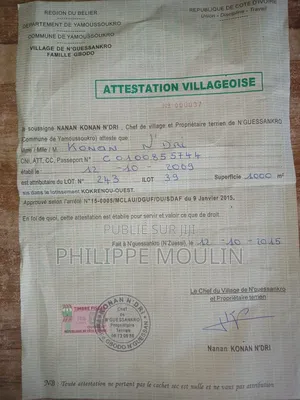 REGION DU BÉLIER
DEPARTEMENT DE YAMOUSSOUKRO
COMMUNE DE YAMOUSSOUKRO
VILLAGE DE N'GUESSANKRO
FAMILLE GBODO
REPUBLIQUE DE COTE D'IVOIRE
Union - Discipline - Travail
ATTESTATION VILLAGEOISE
Je soussigné NANAN KONAN N'DRI, Chef de village et Propriétaire terrien de N'GUESSANKRO
Commune de Yamoussoukro) atteste que
Mme / Mlle / M KONAN N'DRI
CNI, ATT, CC, Passeport N° C 0100355744
établi le 12 - 10 - 2009
est attributaire du LOT N° 243 ILOT 39 Superficie 1000 m²
sis dans le lotissement KOKRENOU-OUEST.
Approuvé selon l'arrêté N°15-0005/MCLAU/DGUF/DU/SDAF du 9 Janvier 2015.
En foi de quoi, cette attestation est établie pour servir et valoir ce que de droit.
PUBLIÉ SUR JIJI
PHILIPPE MOULIN
Fait à N'guessankro (N'Zuessy), le 12-10-2015
Le Chef du Village de N'guessankro
et Propriétaire terrien
KONAN N'DRI
Chef
de
N'GUESSANKRO
Propriétaire
Terrien
Nanan KONAN N'DRI
NB : Toute attestation ne portant pas le cachet sec est nulle et ne vaut pas attribution